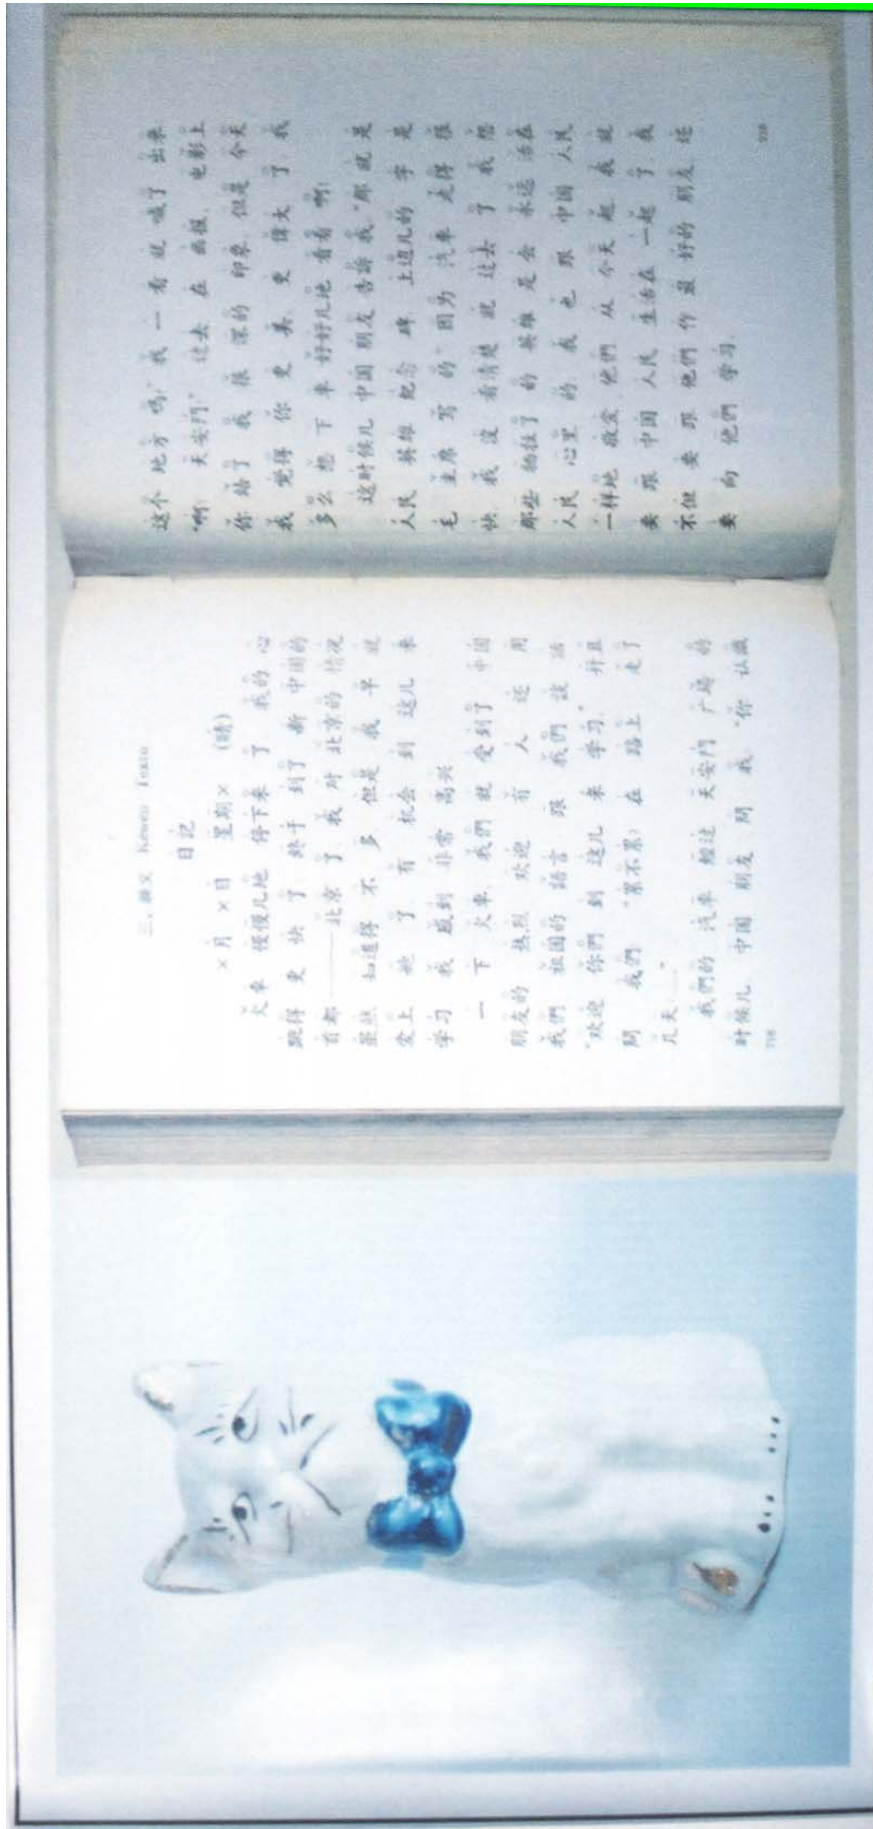 三、課文 Kewen Texts
日記
×月 ×日 星期× (晴)
火車 慢慢儿地 停下来 了, 我的 心
跳得 更 快 了, 終于 到了 新 中国的
首都——北京 了。 我 对 北京的 情况
虽然 知道得 不 多, 但是 我 早 就
爱上 她 了, 有 机会 到 这儿 来
学习, 我 感到 非常 高兴。
一 下 火車, 我們 就 受到了 中国
朋友的 热烈 欢迎, 有 人 还 用
我們 祖国的 語言 跟 我們 說 話:
“欢迎 你們 到 这儿 来 学习。” 幷且
問 我們 “累不累? 在 路上 走了
几天?……”
我們的 汽車 經过 天安門 广場 的
时候儿, 中国 朋友 問 我 “你 认識
718
这个 地方 嗎?” 我 一 看 就 喊了 出来
“啊! 天安門!” 过去 在 画报、 电影上
你 給了 我 很 深的 印象, 但是 今天
我 觉得 你 更 美、 更 偉大 了。 我
多么 想 下 車 好好儿地 看看 啊!
这时候儿 中国 朋友 告訴 我: “那 就 是
人民 英雄 紀念 碑, 上边儿的 字 是
毛 主席 写 的。” 因为 汽車 走得 很
快, 我 没 看清楚 就 过去 了。 我 想
那些 牺牲了 的 英雄 是 会 永远 活在
人民 心里 的。 我 也 跟 中国 人民
一样地 敬爱 他們。 从 今天 起, 我 就
要 跟 中国 人民 生活在 一起 了, 我
不但 要 跟 他們 作 最 好的 朋友, 还
要 向 他們 学习。